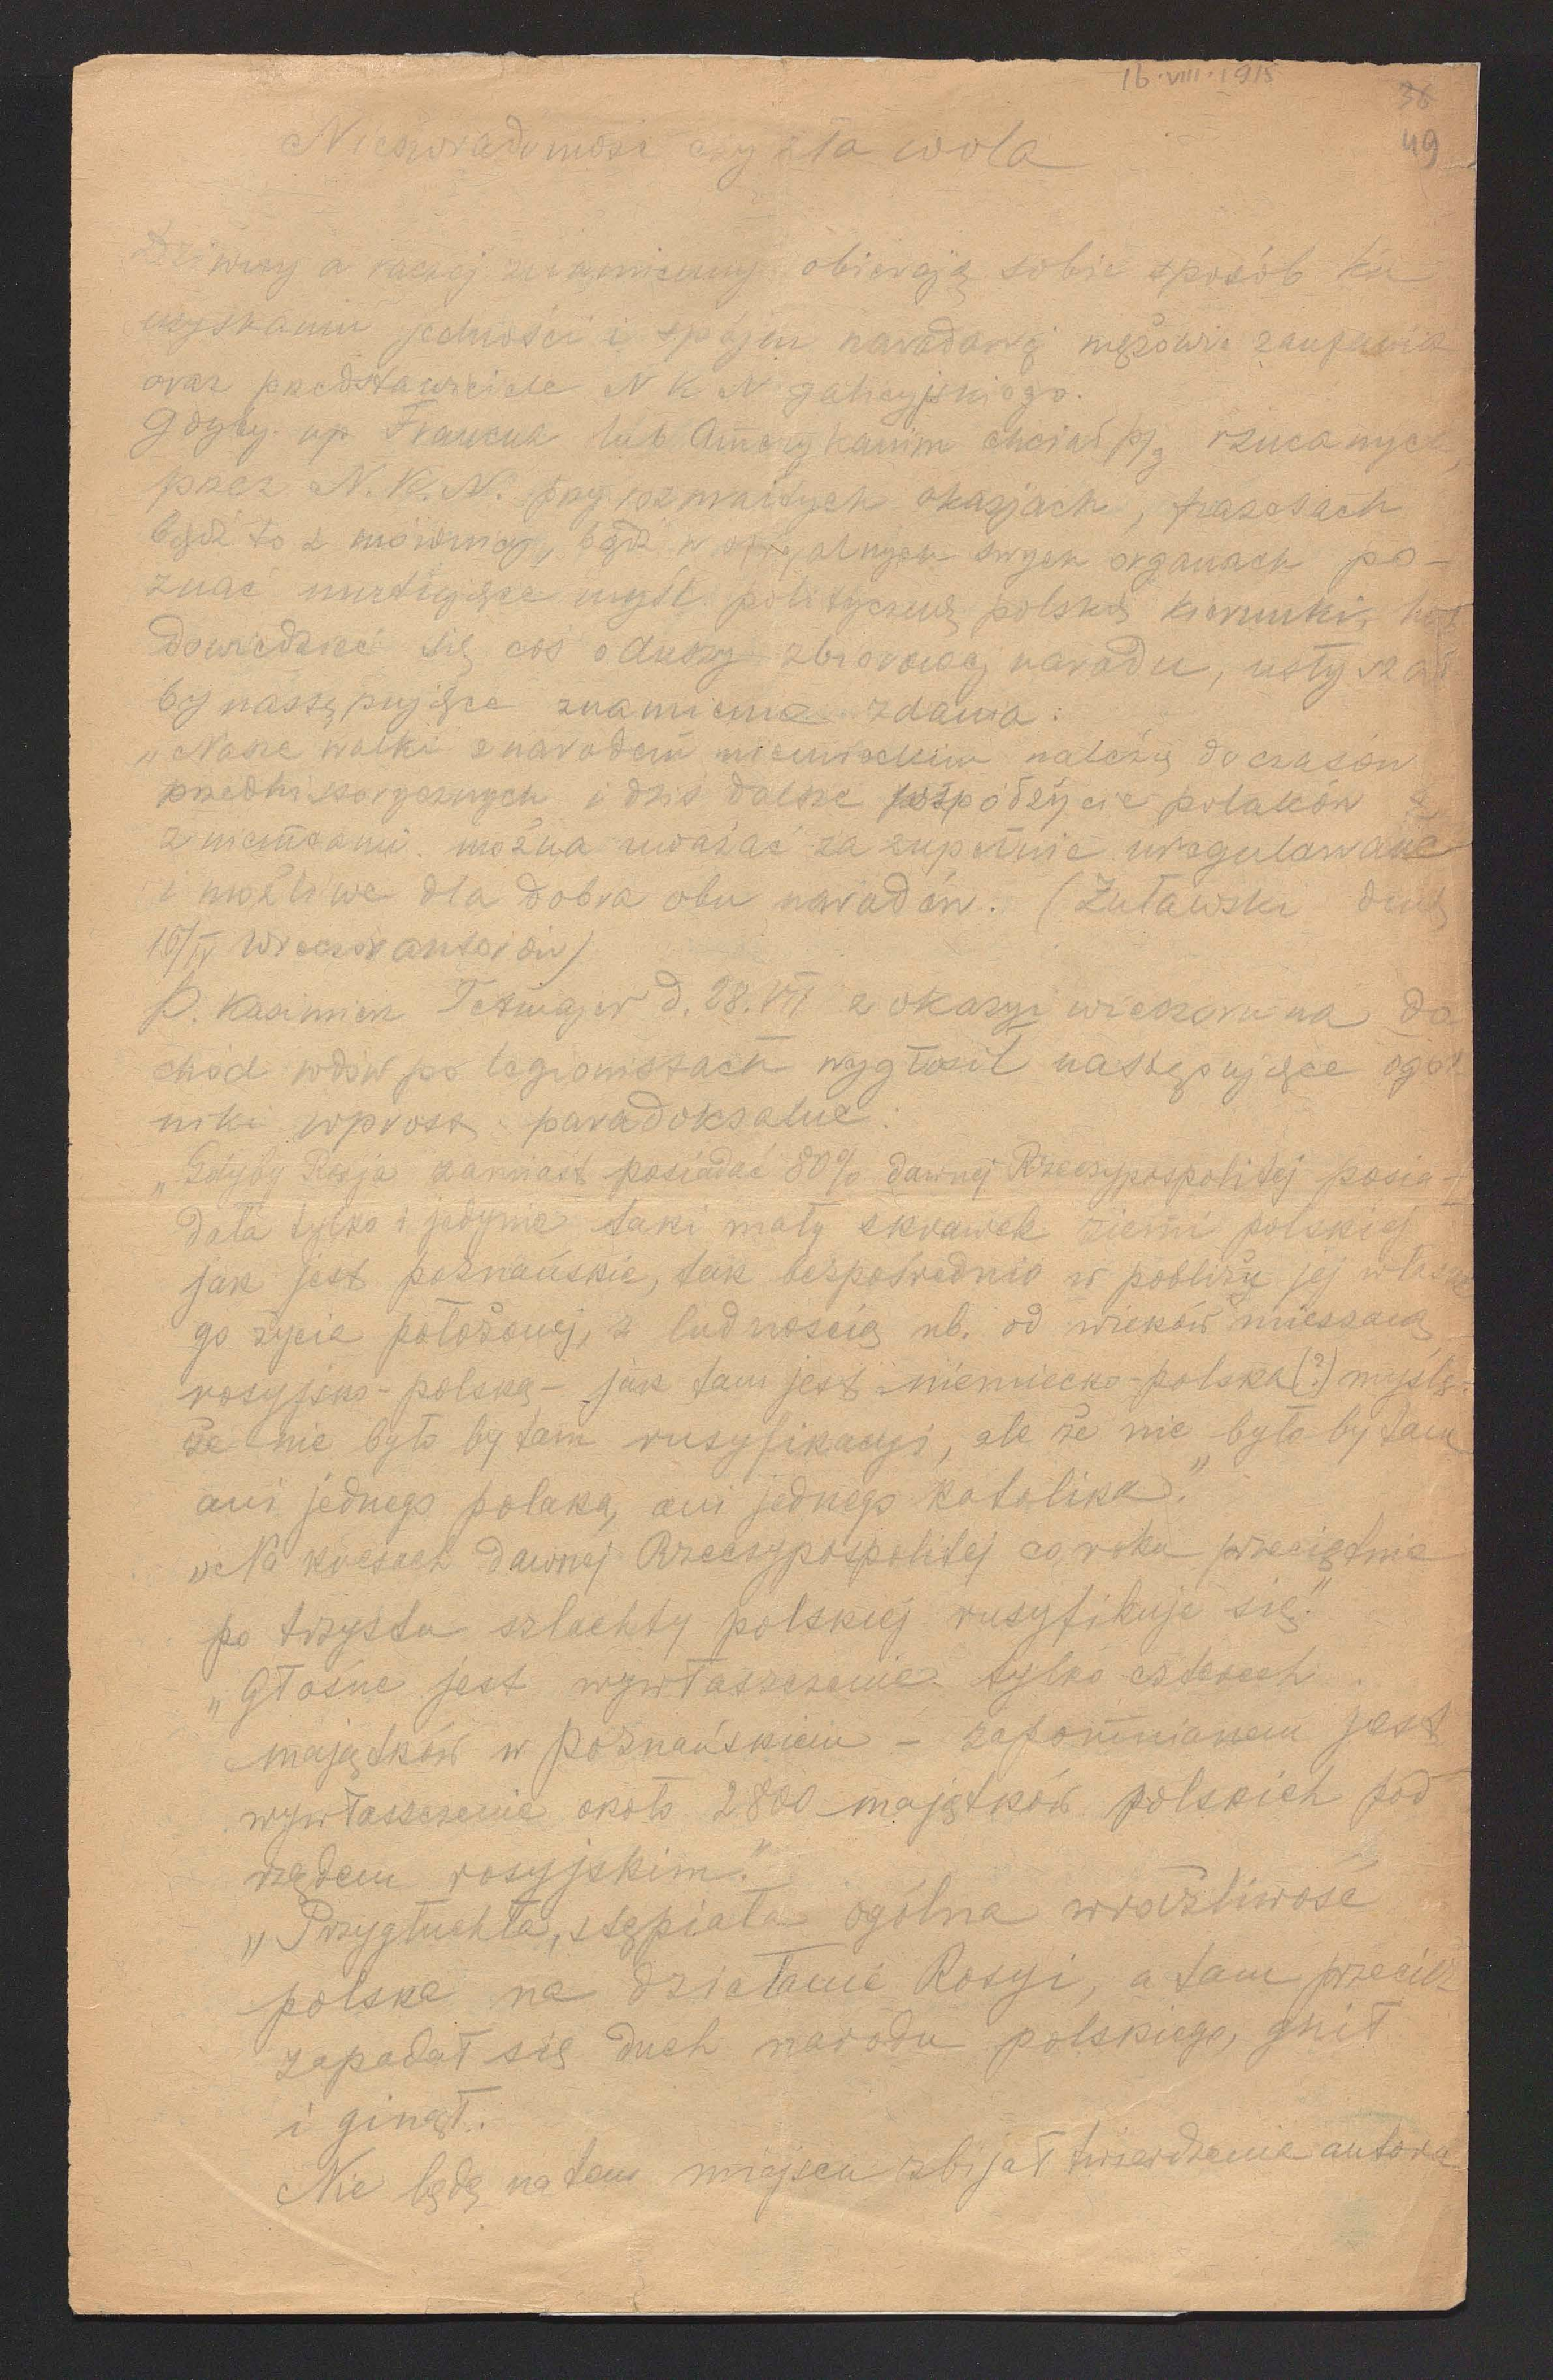 16·VIII·1915
38
49
Nieświadomość czy zła wola
Dziwny a raczej znamienny obierają sobie sposób ku
uzyskaniu jedności i spójni narodowej mężowie zaufania
oraz przedstawiciele N K N galicyjskiego.
Gdyby np Francuz lub Amerykanin chciał p/g rzucanych
przez N.K.N. przy rozmaitych okazjach, frazesach
bądź to z mównicy, bądź w oficjalnych swych organach po-
znać nurtujące myśl polityczną polską kierunki,
dowiedzieć się coś o duszy zbiorowej narodu, usłyszał
by następujące znamienne zdania:
„Nasze walki z narodem niemieckim należą do czasów
przedhistorycznych i dziś dalsze współżycie polaków
z niemcami można uważać za zupełnie uregulowane
i możliwe dla dobra obu narodów. (Żuławski dnia
16/IV wieczór autorów)
P. Kazimierz Tetmajer d. 28.VII z okazyi wieczoru na do
chód wdów po legionistach wygłosił następujące ogól
niki wprost paradoksalne:
„Gdyby Rosja zamiast posiadać 80% dawnej Rzeczypospolitej posia-
dała tylko i jedynie taki mały skrawek ziemi polskiej
jak jest poznańskie, tak bezpośrednio w pobliżu jej własne
go życia położonej, z ludnością nb. od wieków mieszaną
rosyjsko-polską - jak tam jest niemiecko-polska (?) myślę -
że nie było by tam rusyfikacyi, ale że nie było by tam
ani jednego polaka, ani jednego katolika."
„Na kresach dawnej Rzeczypospolitej co roku przeciętnie
po trzystu szlachty polskiej rusyfikuje się."
„Głośne jest wywłaszczenie tylko czterech
majątków w poznańskiem - zapomnianem jest
wywłaszczenie około 2800 majątków polskich pod
rządem rosyjskim."
„Przygłuchła, stępiała ogólna wrażliwość
polska na działanie Rosyi, a tam przecież
zapadał się duch narodu polskiego, gnił
i ginął.
Nie będę na tem miejscu zbijał twierdzenia autora